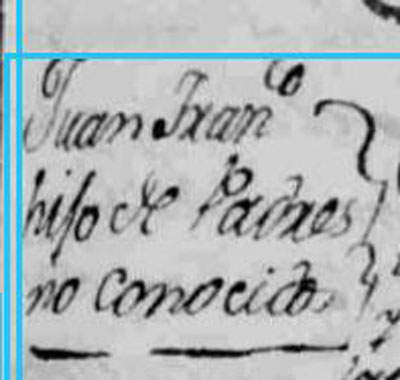 Juan Fran^co
hijo de Padres
no conocido